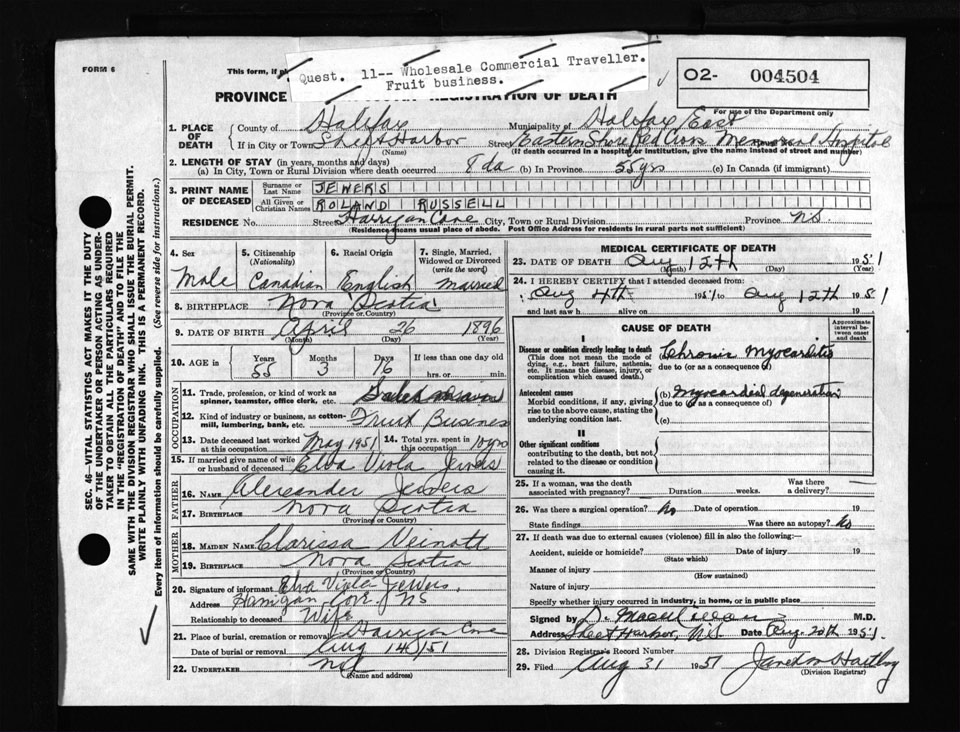 FORM 6
This form, if pl
Quest. 11-- Wholesale Commercial Traveller.
Fruit business.
O2- 004504
PROVINCE REGISTRATION OF DEATH
For use of the Department only
1. PLACE OF DEATH
County of Halifax Municipality of Halifax East
If in City or Town Sheet Harbor Street Eastern Shore Red Cross Memorial Hospital
(Name) (If death occurred in a hospital or institution, give the name instead of street and number)
2. LENGTH OF STAY (in years, months and days)
(a) In City, Town or Rural Division where death occurred 8 da (b) In Province 55 yrs (c) In Canada (if immigrant)
3. PRINT NAME OF DECEASED
Surname or Last Name JEWERS
All Given or Christian Names ROLAND RUSSELL
RESIDENCE No. Street Harrigan Cove City, Town or Rural Division Province N.S.
(Residence means usual place of abode. Post Office Address for residents in rural parts not sufficient)
4. Sex Male
5. Citizenship (Nationality) Canadian
6. Racial Origin English
7. Single, Married, Widowed or Divorced (write the word) Married
8. BIRTHPLACE Nova Scotia
(Province or Country)
9. DATE OF BIRTH April 26 1896
(Month) (Day) (Year)
10. AGE in Years 55 Months 3 Days 16 If less than one day old hrs. or min.
OCCUPATION
11. Trade, profession, or kind of work as spinner, teamster, office clerk, etc.
12. Kind of industry or business, as cotton-mill, lumbering, bank, etc. Fruit Business
13. Date deceased last worked at this occupation May 1951 14. Total yrs. spent in this occupation 10 yrs
15. If married give name of wife or husband of deceased Elva Viola Jewers
FATHER
16. NAME Alexander Jewers
17. BIRTHPLACE Nova Scotia
(Province or Country)
MOTHER
18. MAIDEN NAME Clarissa Veinott
19. BIRTHPLACE Nova Scotia
(Province or Country)
20. Signature of informant Elva Viola Jewers.
Address Harrigan Cove NS
Relationship to deceased Wife
21. Place of burial, cremation or removal Harrigan Cove
Date of burial or removal Aug 14/51
22. UNDERTAKER
(Name and address)
MEDICAL CERTIFICATE OF DEATH
23. DATE OF DEATH Aug 12th 1951
(Month) (Day) (Year)
24. I HEREBY CERTIFY that I attended deceased from:
Aug 4th 1951 to Aug 12th 1951
and last saw h alive on 19
CAUSE OF DEATH
Approximate interval between onset and death
I
Disease or condition directly leading to death
(This does not mean the mode of dying, e.g., heart failure, asthenia, etc. It means the disease, injury, or complication which caused death.)
Chronic Myocarditis
due to (or as a consequence of)
Antecedent causes
Morbid conditions, if any, giving rise to the above cause, stating the underlying condition last.
(b) Myocardial degeneration
due to (or as a consequence of)
(c)
II
Other significant conditions
contributing to the death, but not related to the disease or condition causing it.
25. If a woman, was the death associated with pregnancy? Duration weeks. Was there a delivery?
26. Was there a surgical operation? No Date of operation 19
State findings Was there an autopsy? No
27. If death was due to external causes (violence) fill in also the following:
Accident, suicide or homicide? Date of injury 19
(State which)
Manner of injury
(How sustained)
Nature of injury
Specify whether injury occurred in industry, in home, or in public place
Signed by D. MacMillan M.D.
Address Sheet Harbor, N.S. Date Aug. 20th 1951.
28. Division Registrar's Record Number
29. Filed Aug 31 1951
(Division Registrar)
SEC. 46—VITAL STATISTICS ACT MAKES IT THE DUTY
OF THE UNDERTAKER OR PERSON ACTING AS UNDER-
TAKER TO OBTAIN ALL THE PARTICULARS REQUIRED
IN THE "REGISTRATION OF DEATH" AND TO FILE THE
SAME WITH THE DIVISION REGISTRAR WHO SHALL ISSUE THE BURIAL PERMIT.
WRITE PLAINLY WITH UNFADING INK. THIS IS A PERMANENT RECORD.
Every item of information should be carefully supplied. (See reverse side for instructions.)